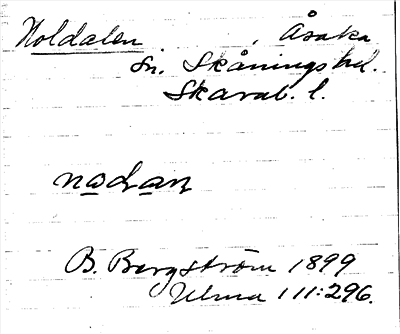 Holdalen , Åsaka
Sn. Skånings hd.
Skarab. l.
nodan
B. Bergström 1899
Ulma 111:296.